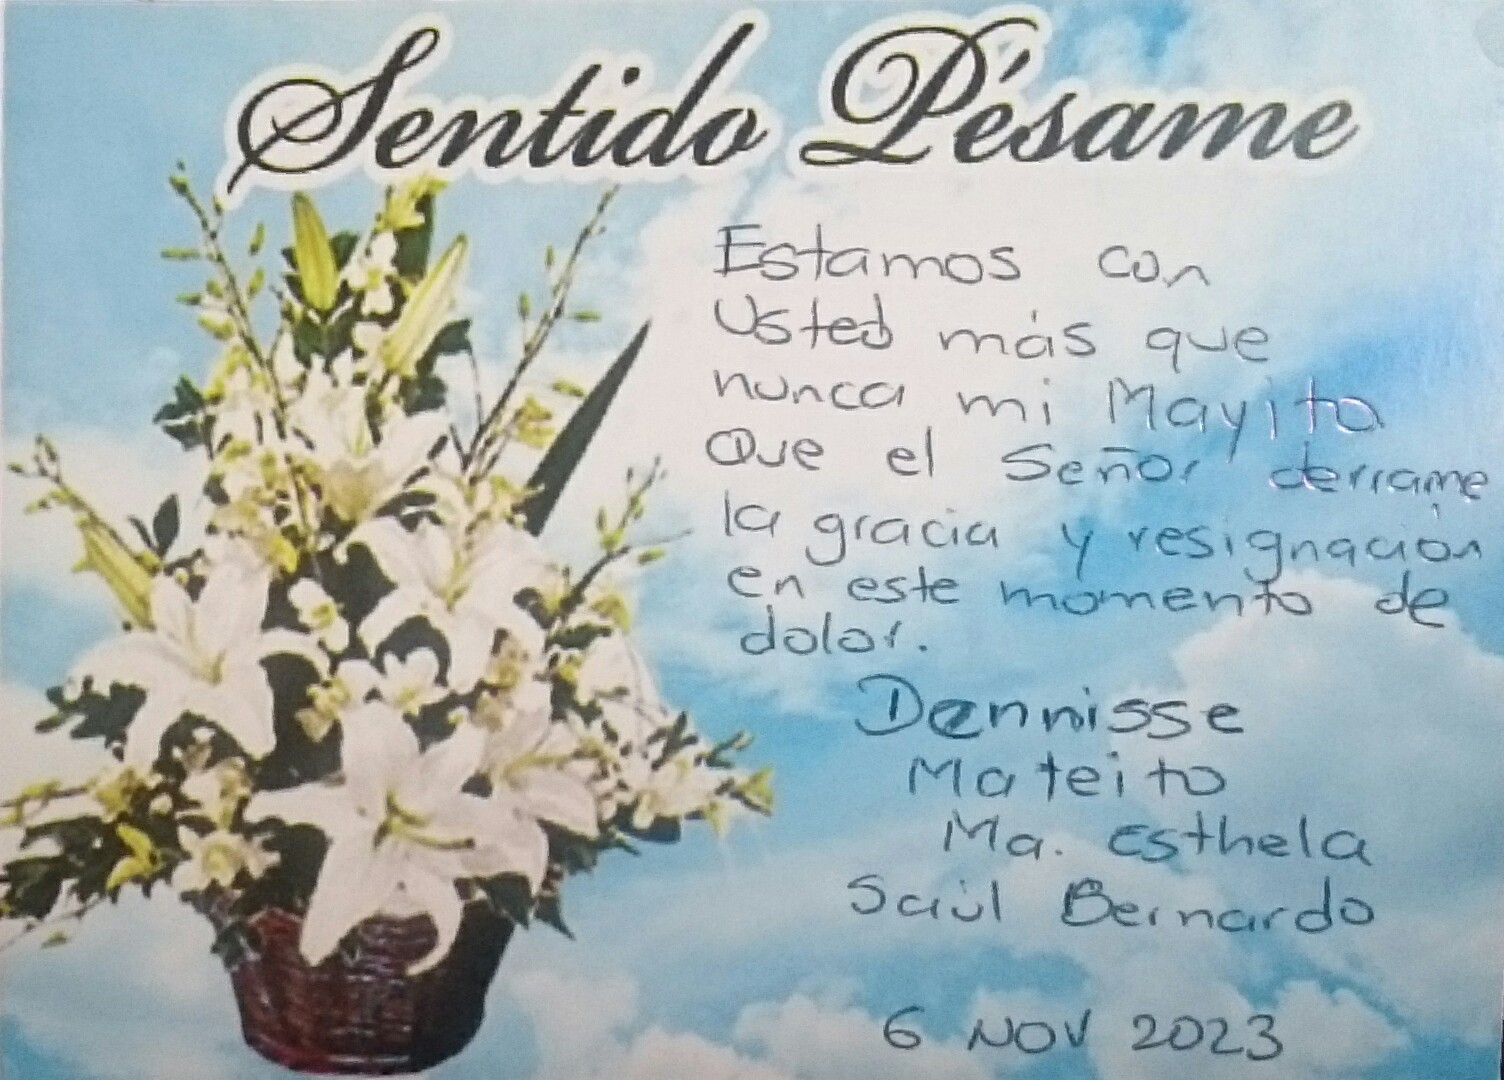 Sentido Pésame
Estamos con
Usted más que
nunca mi Mayito
Que el Señor derrame
la gracia y resignación
en este momento de
dolor.
Dennisse
Mateito
Ma. Esthela
Saúl Bernardo
6 NOV 2023